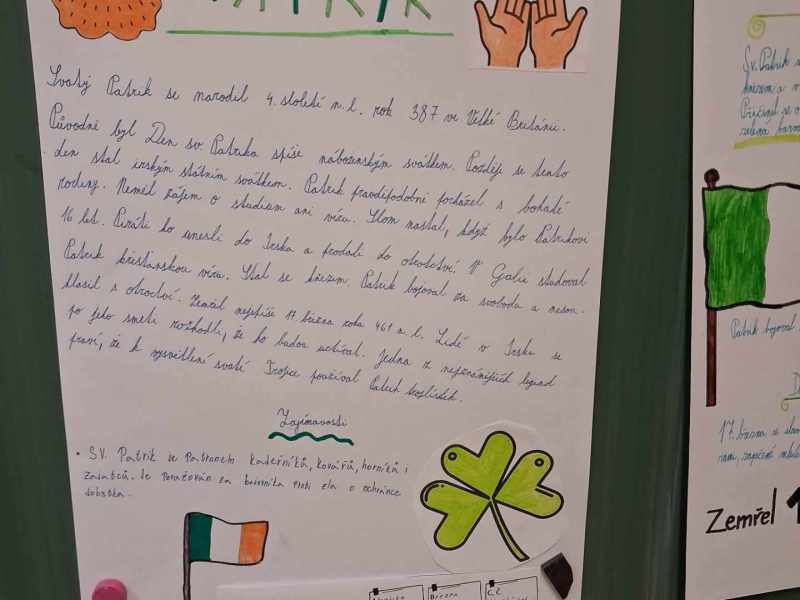 PATRIK
Svatý Patrik se narodil 4. století n. l. rok 387 ve Velké Británii.
Původně byl Den sv. Patrika spíše náboženským svátkem. Později se tento
den stal irským státním svátkem. Patrik pravděpodobně pocházel s bohaté
rodiny. Neměl zájem o studium ani víru. Zlom nastal, když bylo Patrikovi
16 let. Piráti ho unesli do Irska a prodali do otroctví. V Galii studoval
Patrik křesťanskou víru. Stal se knězem. Patrik bojoval za svobodu a nesou-
hlasil s otroctví. Zemřel nejspíše 17. března roku 461 n. l. Lidé v Irsku se
po jeho smrti rozhodli, že ho budou uctívat. Jedna z nejznámějších legend
praví, že k vysvětlení svaté Trojice používal Patrik trojlístek.
Zajímavosti
• SV. Patrik je Patronem kadeřníků, kovářů, horníků i
Je považován za bojovníka proti zlu a ochránce
dobytka.
BŘEZEN
Sv. Patrik
knězem a
zelená barva
Patrik bojoval
17. března se
Zemřel 1